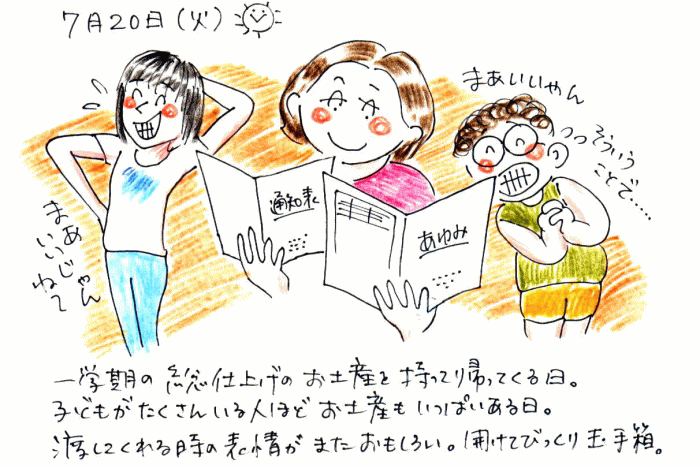 7月20日(火)
まあいいじゃん
ねて
通知表
あゆみ
まあいいやん
っっそういう
ことで……
一学期の総仕上げのお土産を持って帰ってくる日。
子どもがたくさんいる人ほどお土産もいっぱいある日。
渡してくれる時の表情がまたおもしろい。開けてびっくり玉手箱。